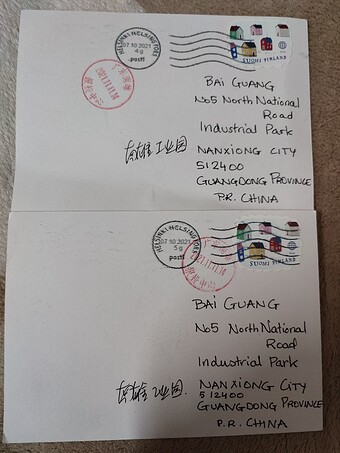 HELSINKI HELSINGFORS
07 10 2021
posti
SUOMI FINLAND
2021.11.11.14
BAI GUANG
No5 North National
Road
Industrial Park
NANXIONG CITY
512400
GUANGDONG PROVINCE
P.R. CHINA
南雄工业园
HELSINKI HELSINGFORS
07 10 2021
posti
SUOMI FINLAND
2021.11.11.14
BAI GUANG
No5 North National
Road
Industrial Park
NANXIONG CITY
512400
GUANGDONG PROVINCE
P.R. CHINA
南雄工业园